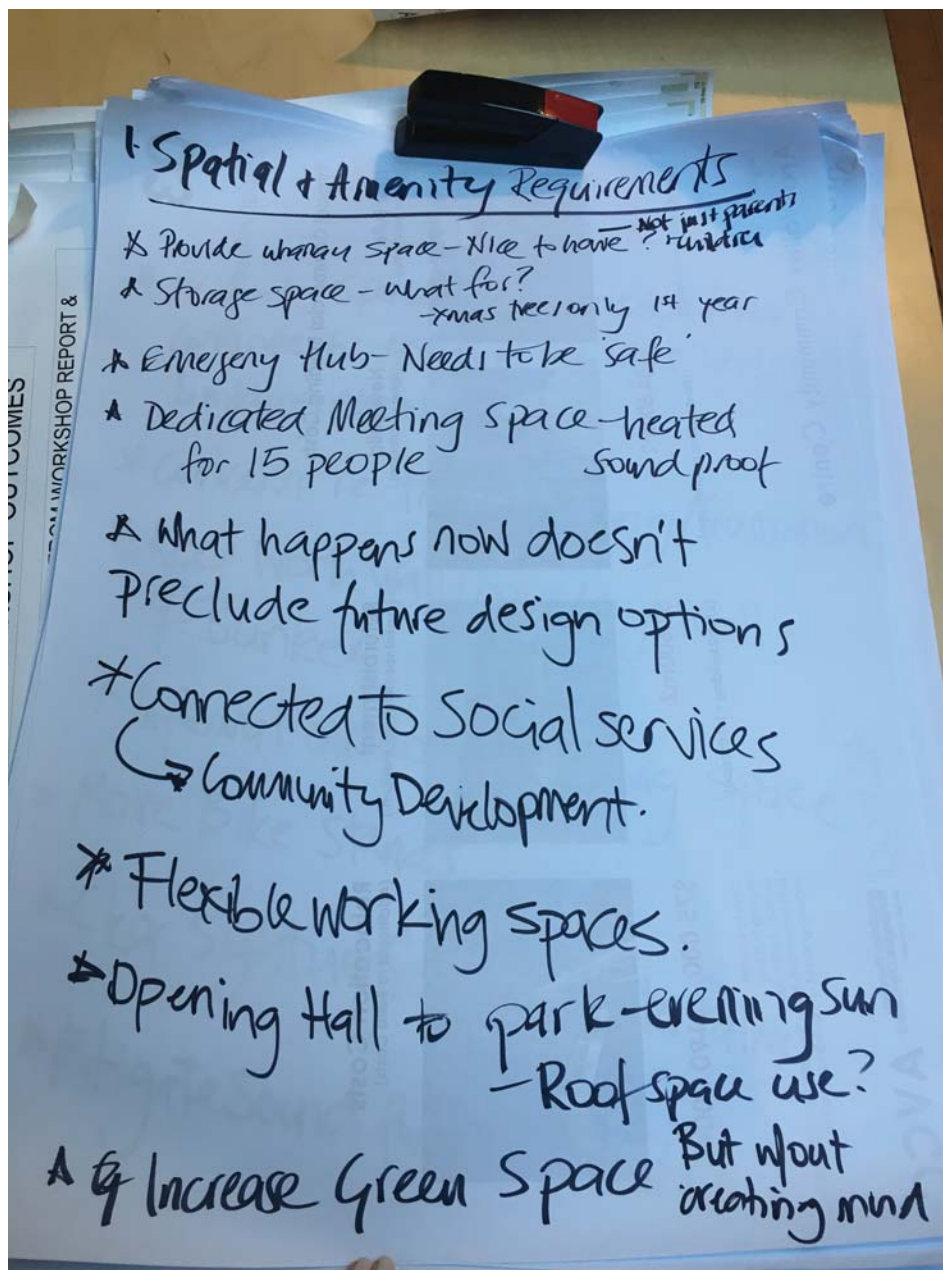 1. Spatial + Amenity Requirements
* Provide whanau space - Nice to have?
- Not just parents
+ children
* Storage space - what for?
- xmas tree/only 1st year
* Emergeny Hub - Needs to be 'safe'
* Dedicated Meeting Space - heated
for 15 people sound proof
* What happens now doesn't
preclude future design options
* Connected to Social services
→ Community Development.
* Flexible working spaces.
* Opening Hall to park - evening sun
- Roof space use?
* Increase Green Space But w/out
creating mud
OUTCOMES
FROM WORKSHOP REPORT &